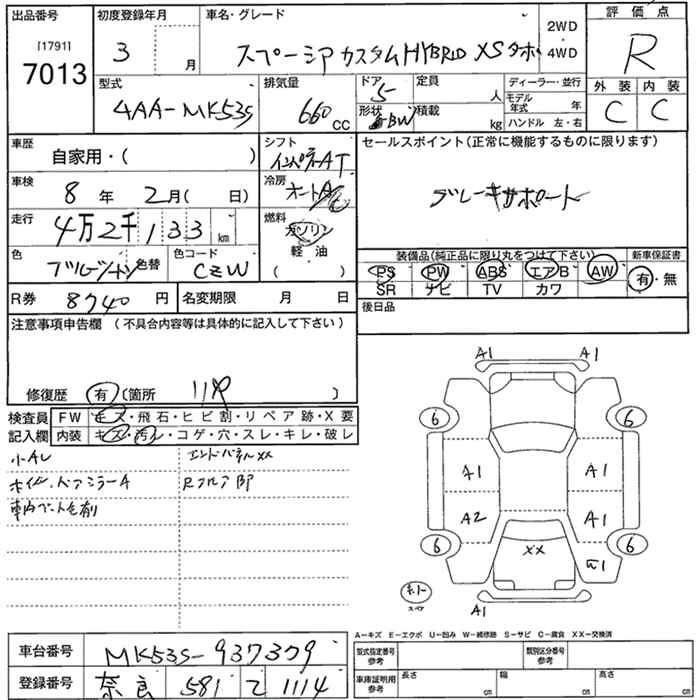 出品番号 [1791] 7013
初度登録年月 3 月
車名・グレード スペーシア カスタム HYBRID XS ターボ
2WD
4WD
評価点 R
外装 C 内装 C
型式 4AA-MK53S
排気量 660 CC
ドア 5
形状 5BW
定員 人
積載 kg
ディーラー・並行
モデル年式 年
ハンドル 左・右
車歴 自家用・( )
シフト AT
セールスポイント(正常に機能するものに限ります)
ブレーキサポート
車検 8 年 2 月( 日)
冷房 オートA/C
走行 4万2千133 km
燃料 ガソリン
軽油
( )
色 色替
色コード CZW
装備品(純正品に限り丸をつけて下さい)
新車保証書
PS PW ABS エアB AW 有・無
SR ナビ TV カワ
R券 8740 円
名変期限 月 日
後日品
注意事項申告欄 (不具合内容等は具体的に記入して下さい)
修復歴 有 (箇所 )
検査員記入欄
FW キズ・飛石・ヒビ割・リペア跡・X要
内装 キズ・汚レ・コゲ・穴・スレ・キレ・破レ
小AU エンドパネルXX
ホイル・ドアミラーA Rフロア
A1 A1
6 6
A1 A1
A2 A1
6 6
XX
スペア
A1
A-キズ E-エクボ U-凹み W-補修跡 S-サビ C-腐食 XX-交換済
車台番号 MK53S-937379
型式指定番号 参考
類別区分番号 参考
登録番号 奈良 581 て 1114
車庫証明用 参考 長さ cm 幅 cm 高さ cm